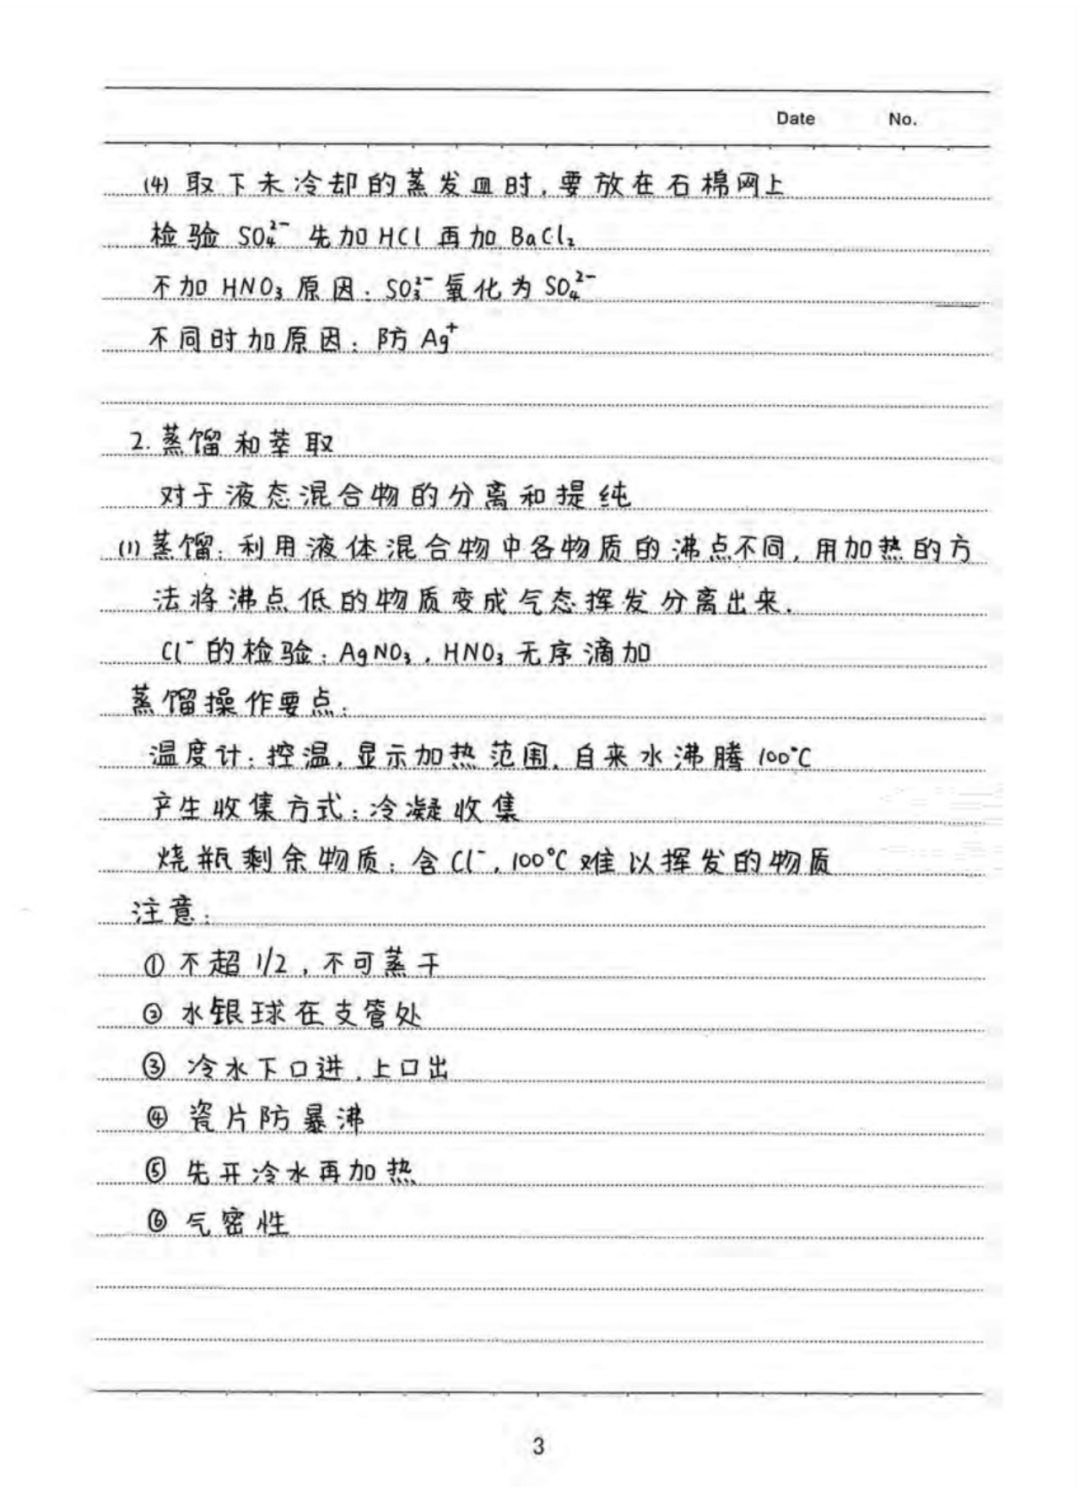 Date No.
(4) 取下未冷却的蒸发皿时,要放在石棉网上
检验 SO₄²⁻ 先加 HCl 再加 BaCl₂
不加 HNO₃ 原因:SO₃²⁻ 氧化为 SO₄²⁻
不同时加原因:防 Ag⁺
2. 蒸馏和萃取
对于液态混合物的分离和提纯
(1) 蒸馏:利用液体混合物中各物质的沸点不同,用加热的方
法将沸点低的物质变成气态挥发分离出来.
Cl⁻ 的检验:AgNO₃,HNO₃ 无序滴加
蒸馏操作要点:
温度计:控温,显示加热范围,自来水沸腾 100℃
产生收集方式:冷凝收集
烧瓶剩余物质:含 Cl⁻,100℃ 难以挥发的物质
注意:
① 不超 1/2,不可蒸干
② 水银球在支管处
③ 冷水下口进,上口出
④ 瓷片防暴沸
⑤ 先开冷水再加热
⑥ 气密性
3